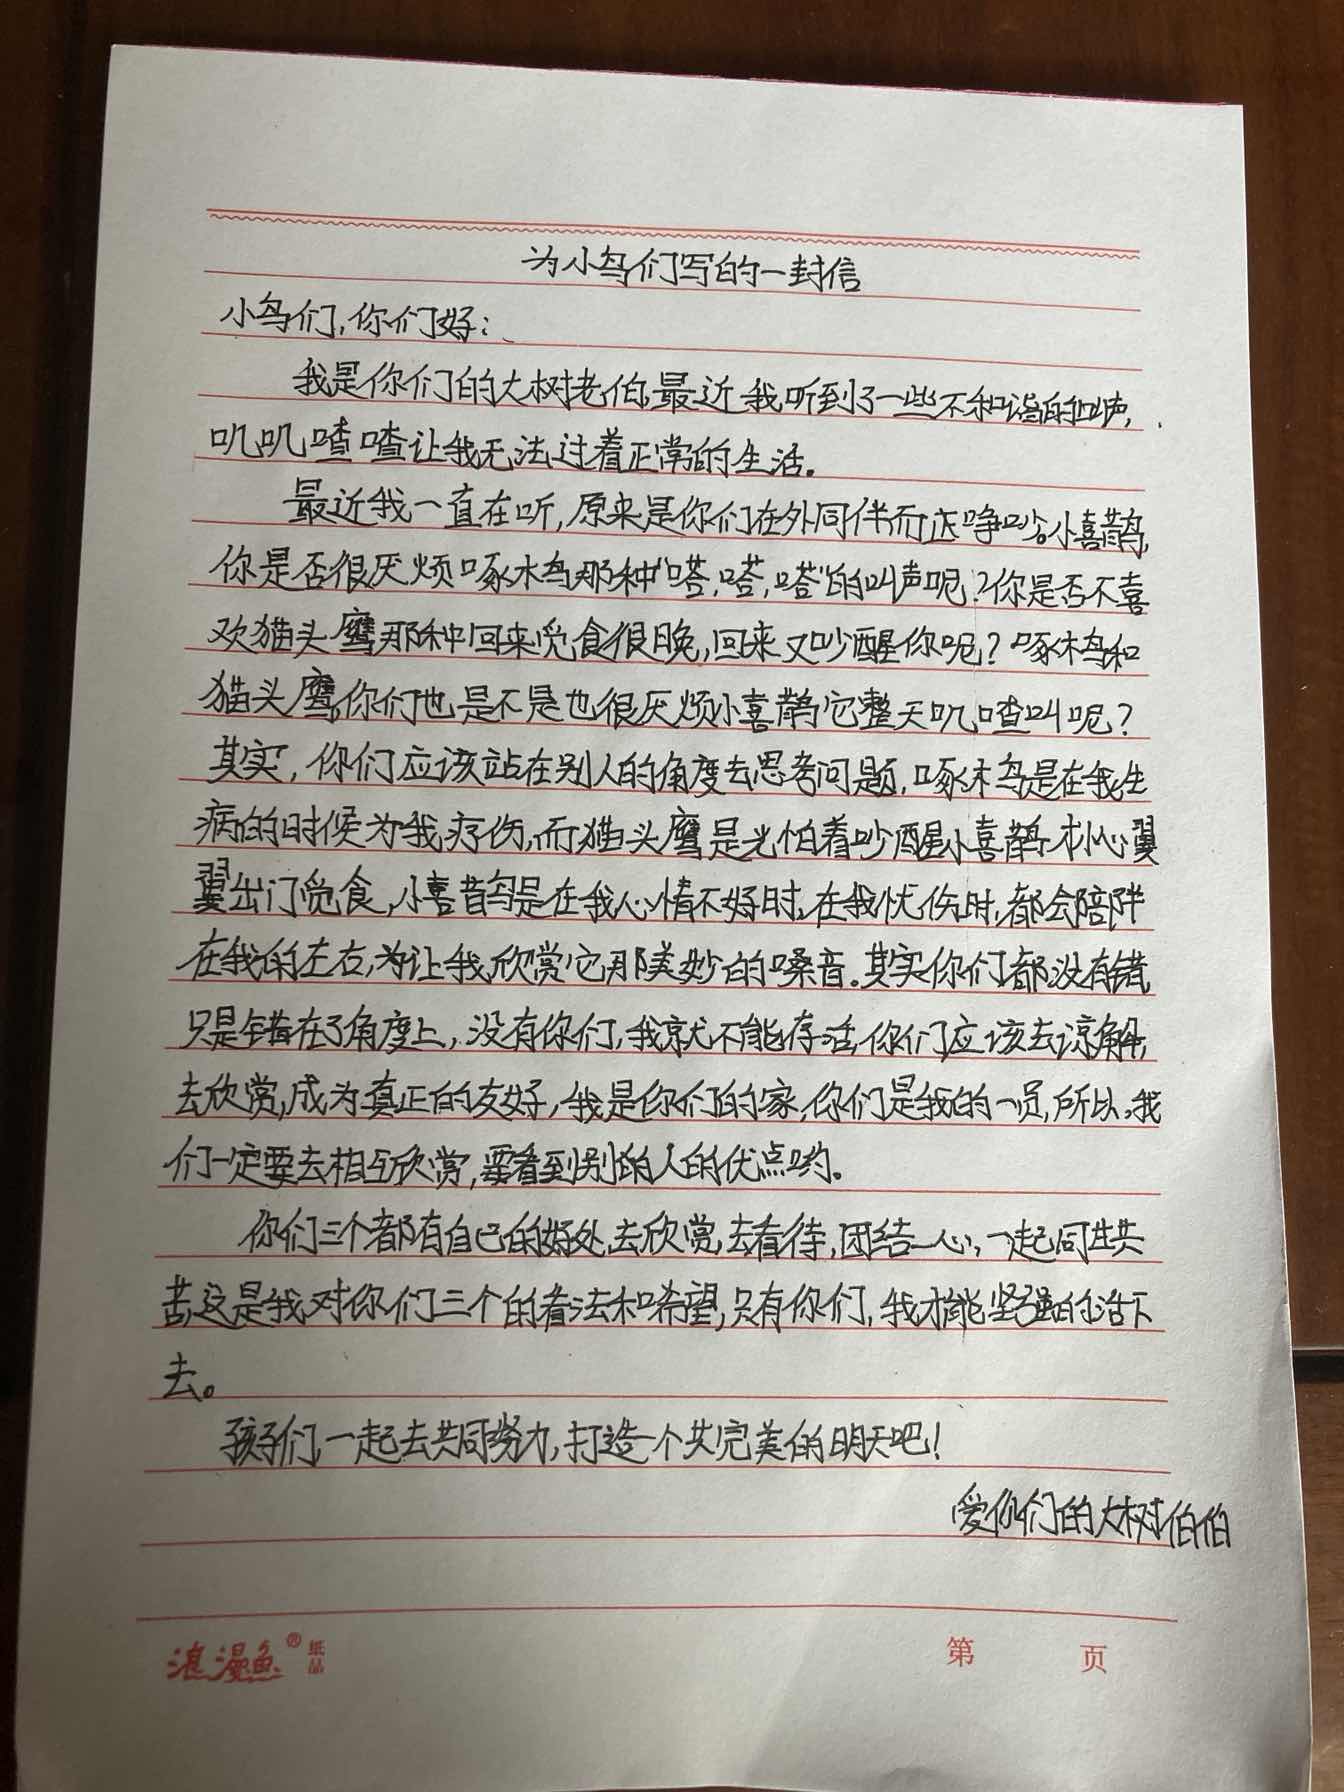 为小鸟们写的一封信
小鸟们,你们好:
我是你们的大树老伯,最近我听到了一些不和谐的叫声,
叽叽喳喳让我无法过着正常的生活。
最近我一直在听,原来是你们在外同伴而在争吵。小喜鹊,
你是否很厌烦啄木鸟那种“嗒,嗒,嗒”的叫声呢?你是否不喜
欢猫头鹰那种回来觅食很晚,回来又吵醒你呢?啄木鸟和
猫头鹰,你们也是不是也很厌烦小喜鹊它整天叽喳叫呢?
其实,你们应该站在别人的角度去思考问题,啄木鸟是在我生
病的时候为我疗伤,而猫头鹰是光怕着吵醒小喜鹊才小心翼
翼出门觅食,小喜鹊是在我心情不好时,在我忧伤时,都会陪伴
在我的左右,为让我欣赏它那美妙的嗓音。其实你们都没有错,
只是错在了角度上,没有你们,我就不能存活,你们应该去谅解,
去欣赏,成为真正的友好,我是你们的家,你们是我的一员,所以,我
们一定要去相互欣赏,要看到别的人的优点哟。
你们三个都有自己的好处,去欣赏,去看待,团结一心,一起同甘共
苦,这是我对你们三个的看法和希望,只有你们,我才能坚强的活下
去。
孩子们,一起去共同努力,打造一个共完美的明天吧!
爱你们的大树伯伯
浪漫鱼® 纸品
第 页